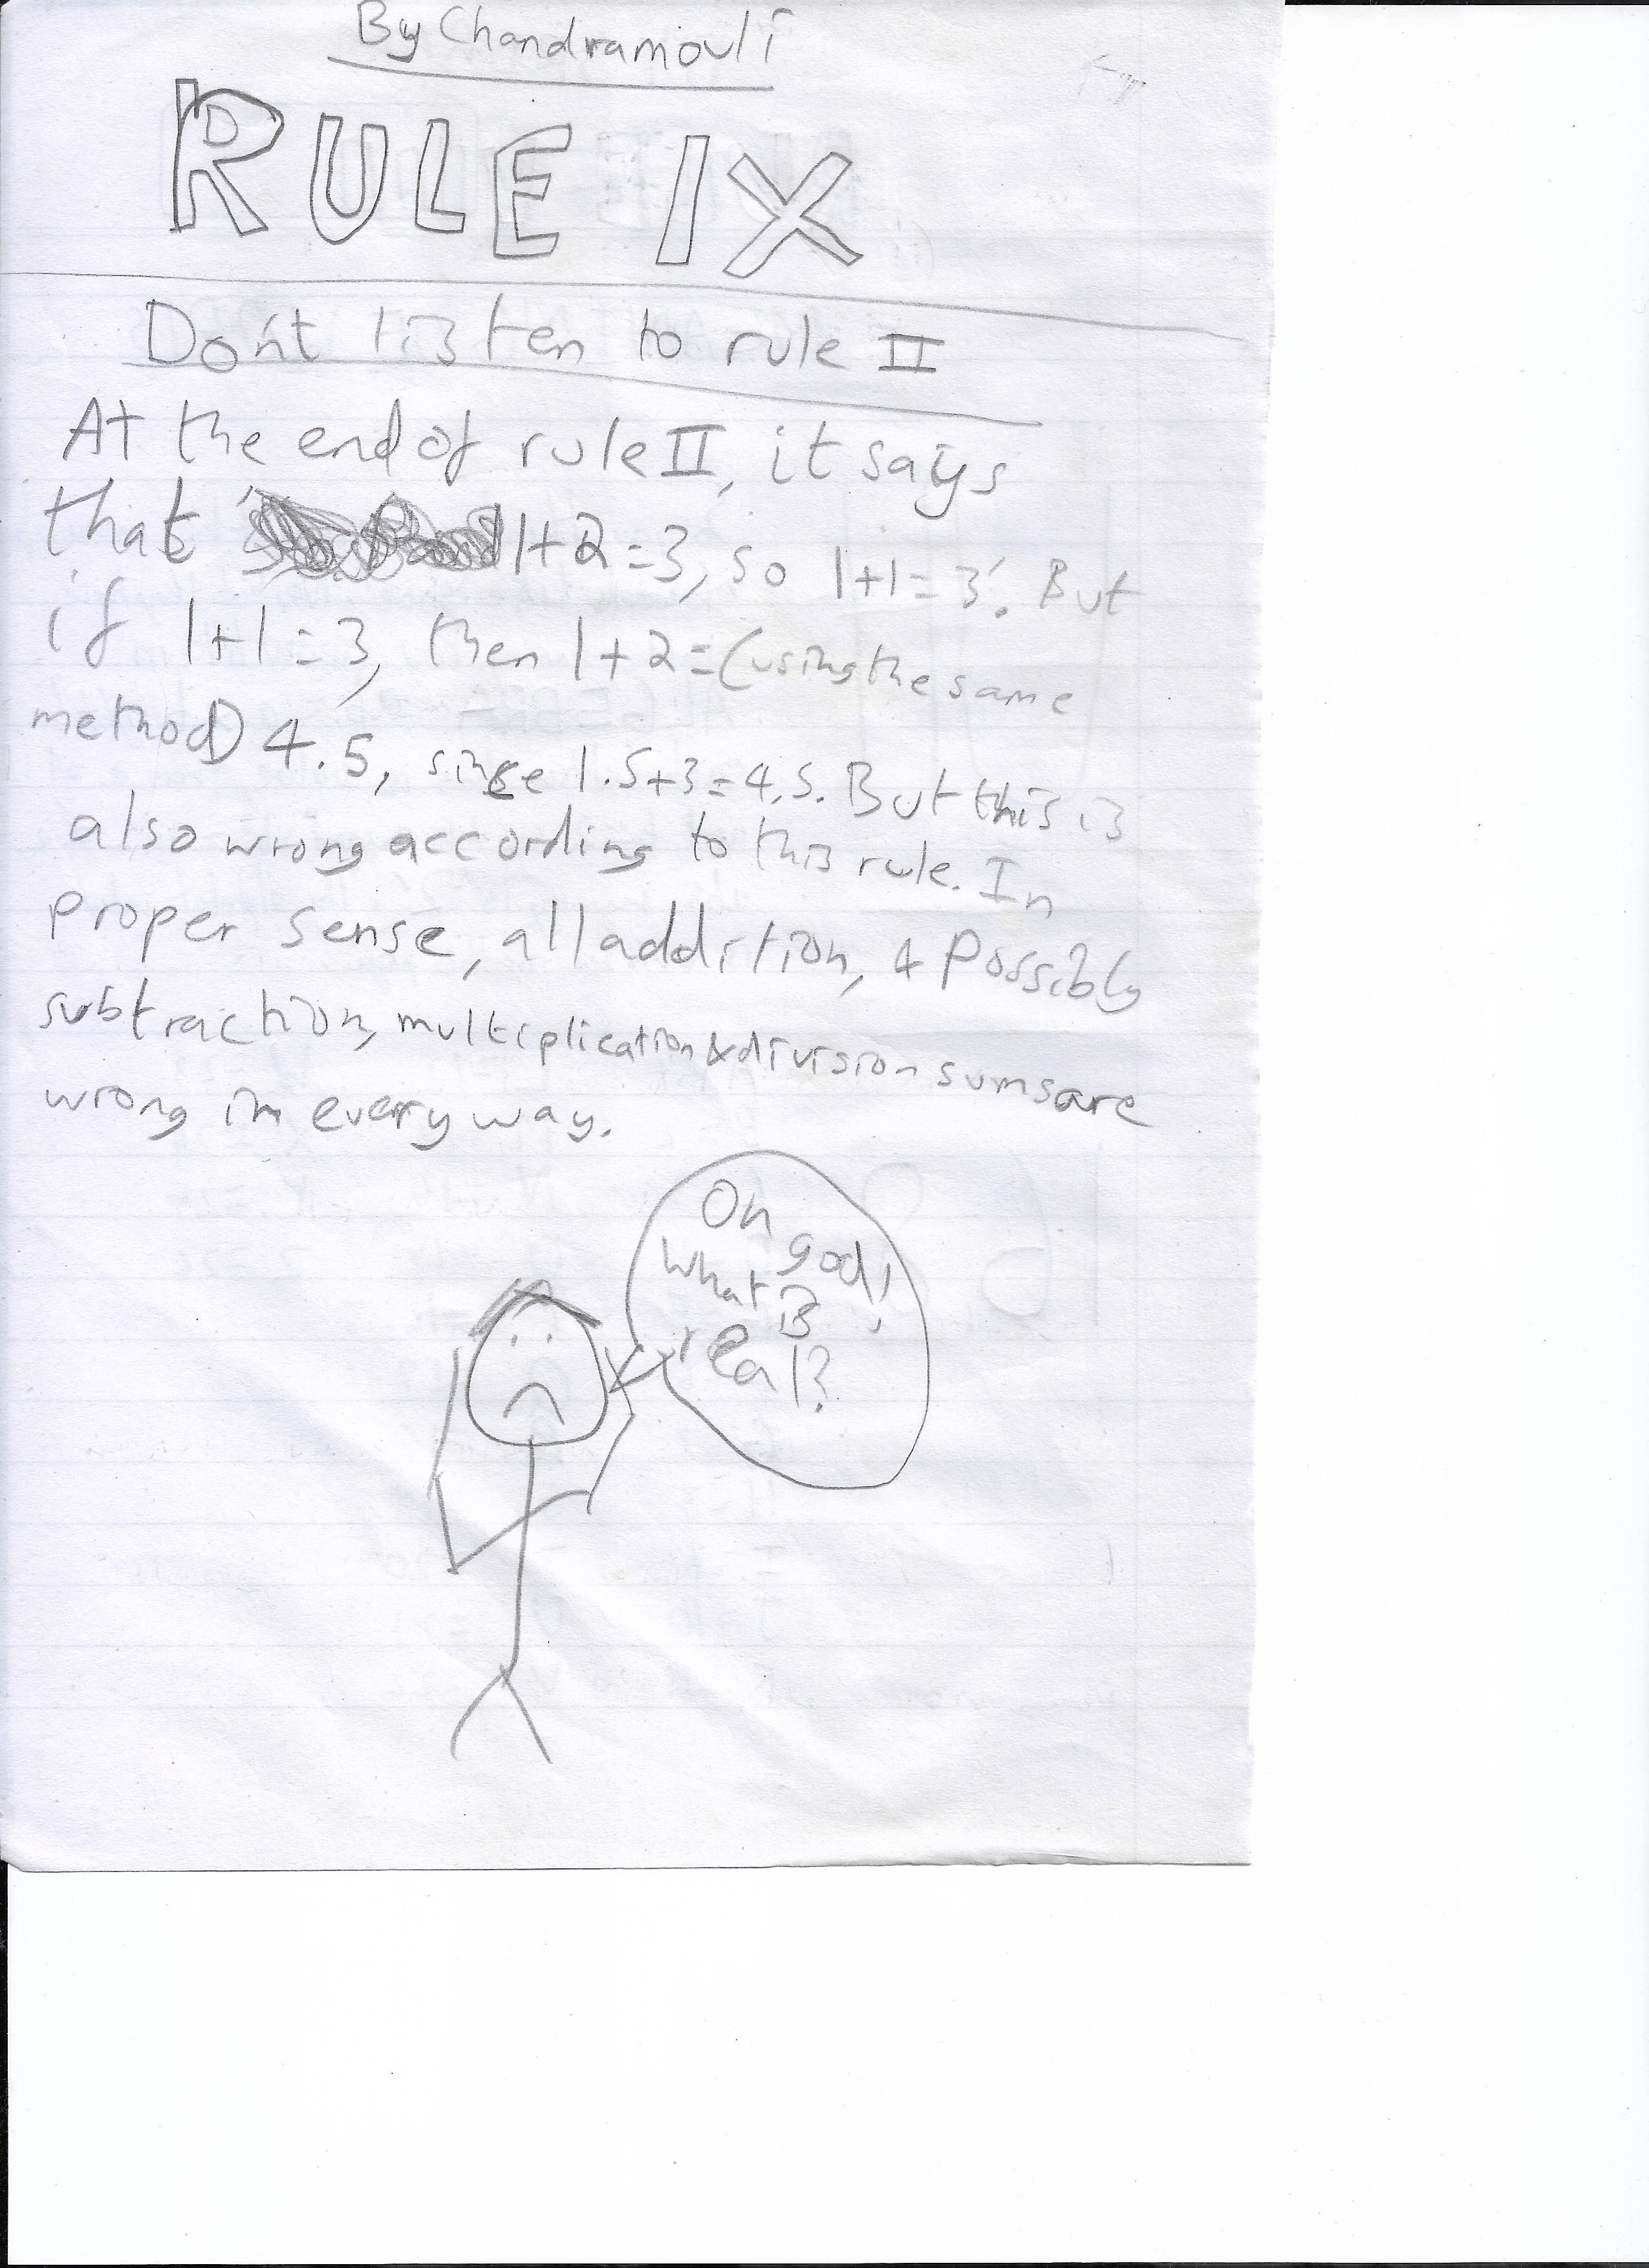 By Chandramouli
RULE IX
Don't listen to rule II
At the end of rule II, it says
that 1+2=3, so 1+1=3'. But
if 1+1=3, then 1+2=(using the same
method) 4.5, since 1.5+3=4.5. But this is
also wrong according to this rule. In
proper sense, all addition, & possibly
subtraction, multiplication & division sums are
wrong in every way.
Oh
god!
what is
real?